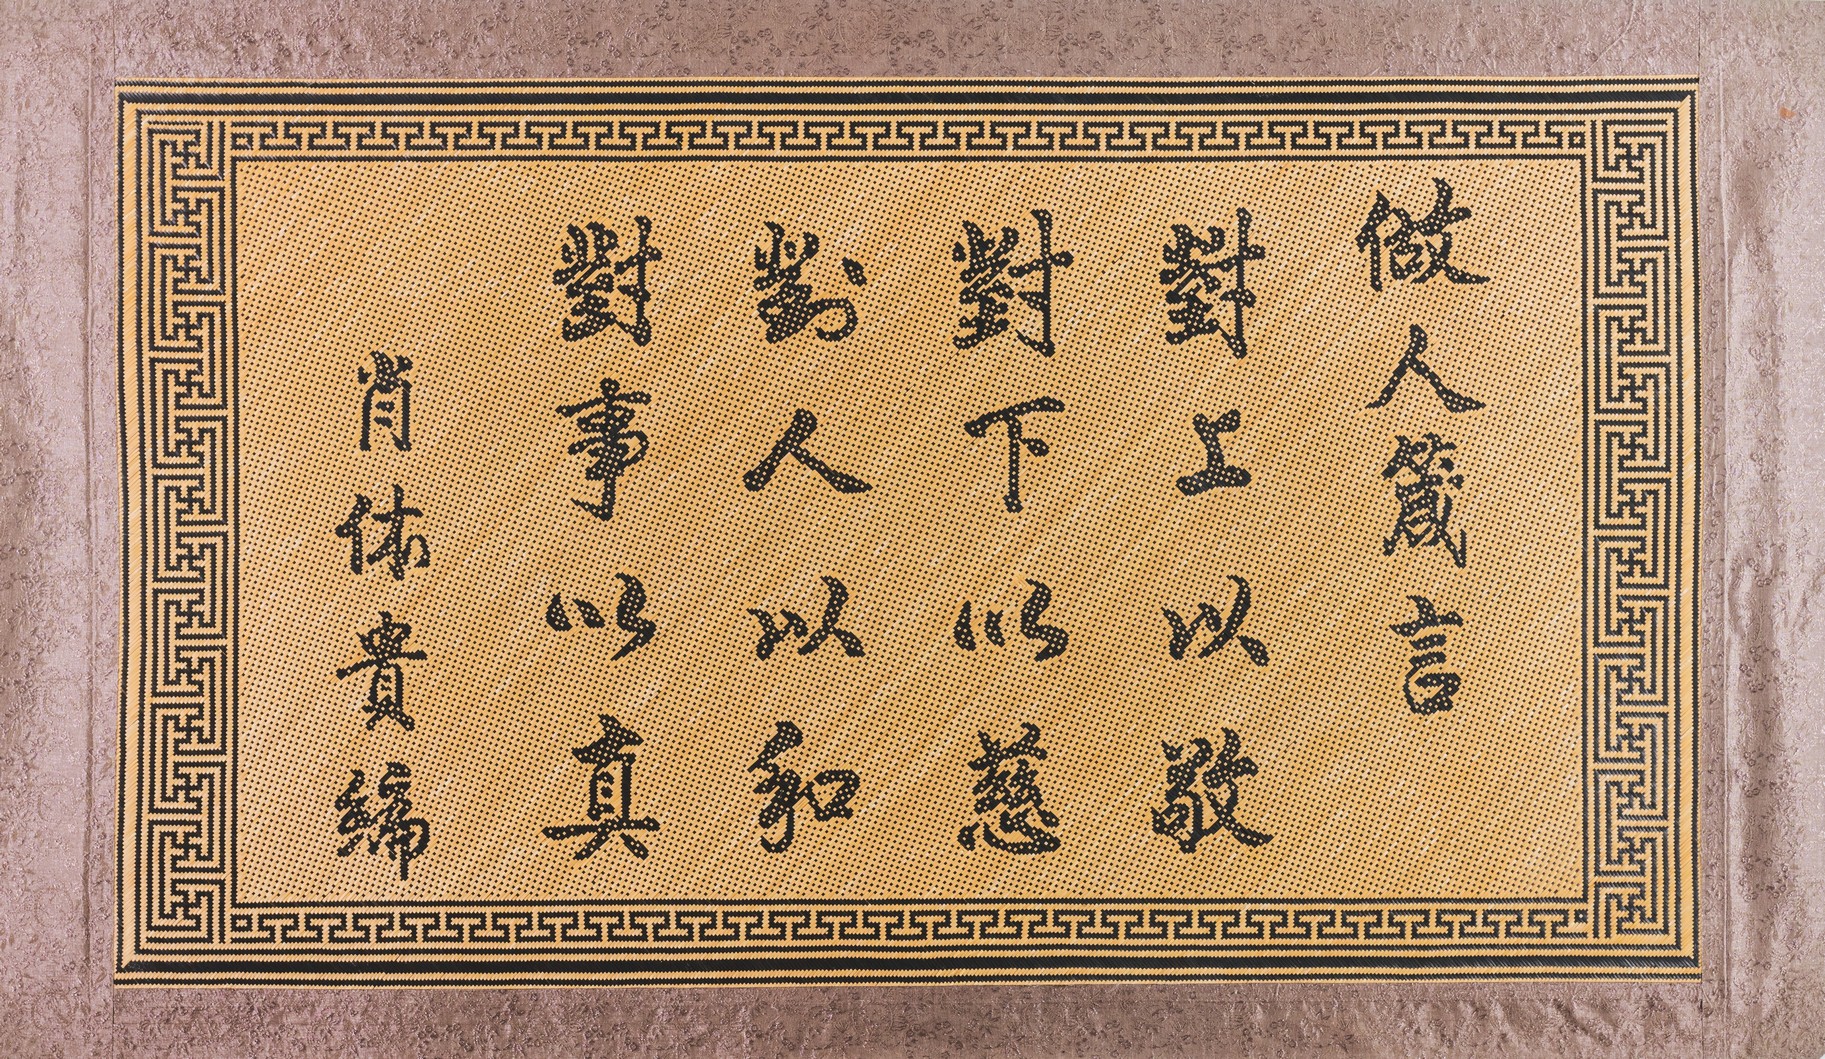 做人箴言
對上以敬
對下以慈
對人以和
對事以真
肖体貴編